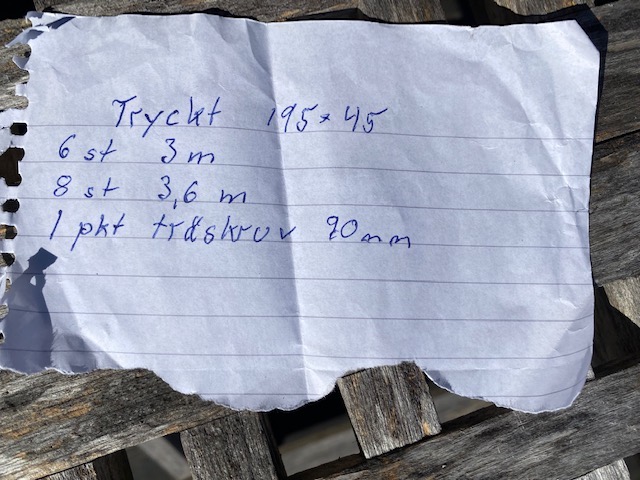 Tryckt 195*45
6 st 3 m
8 st 3,6 m
1 pkt träskruv 90mm